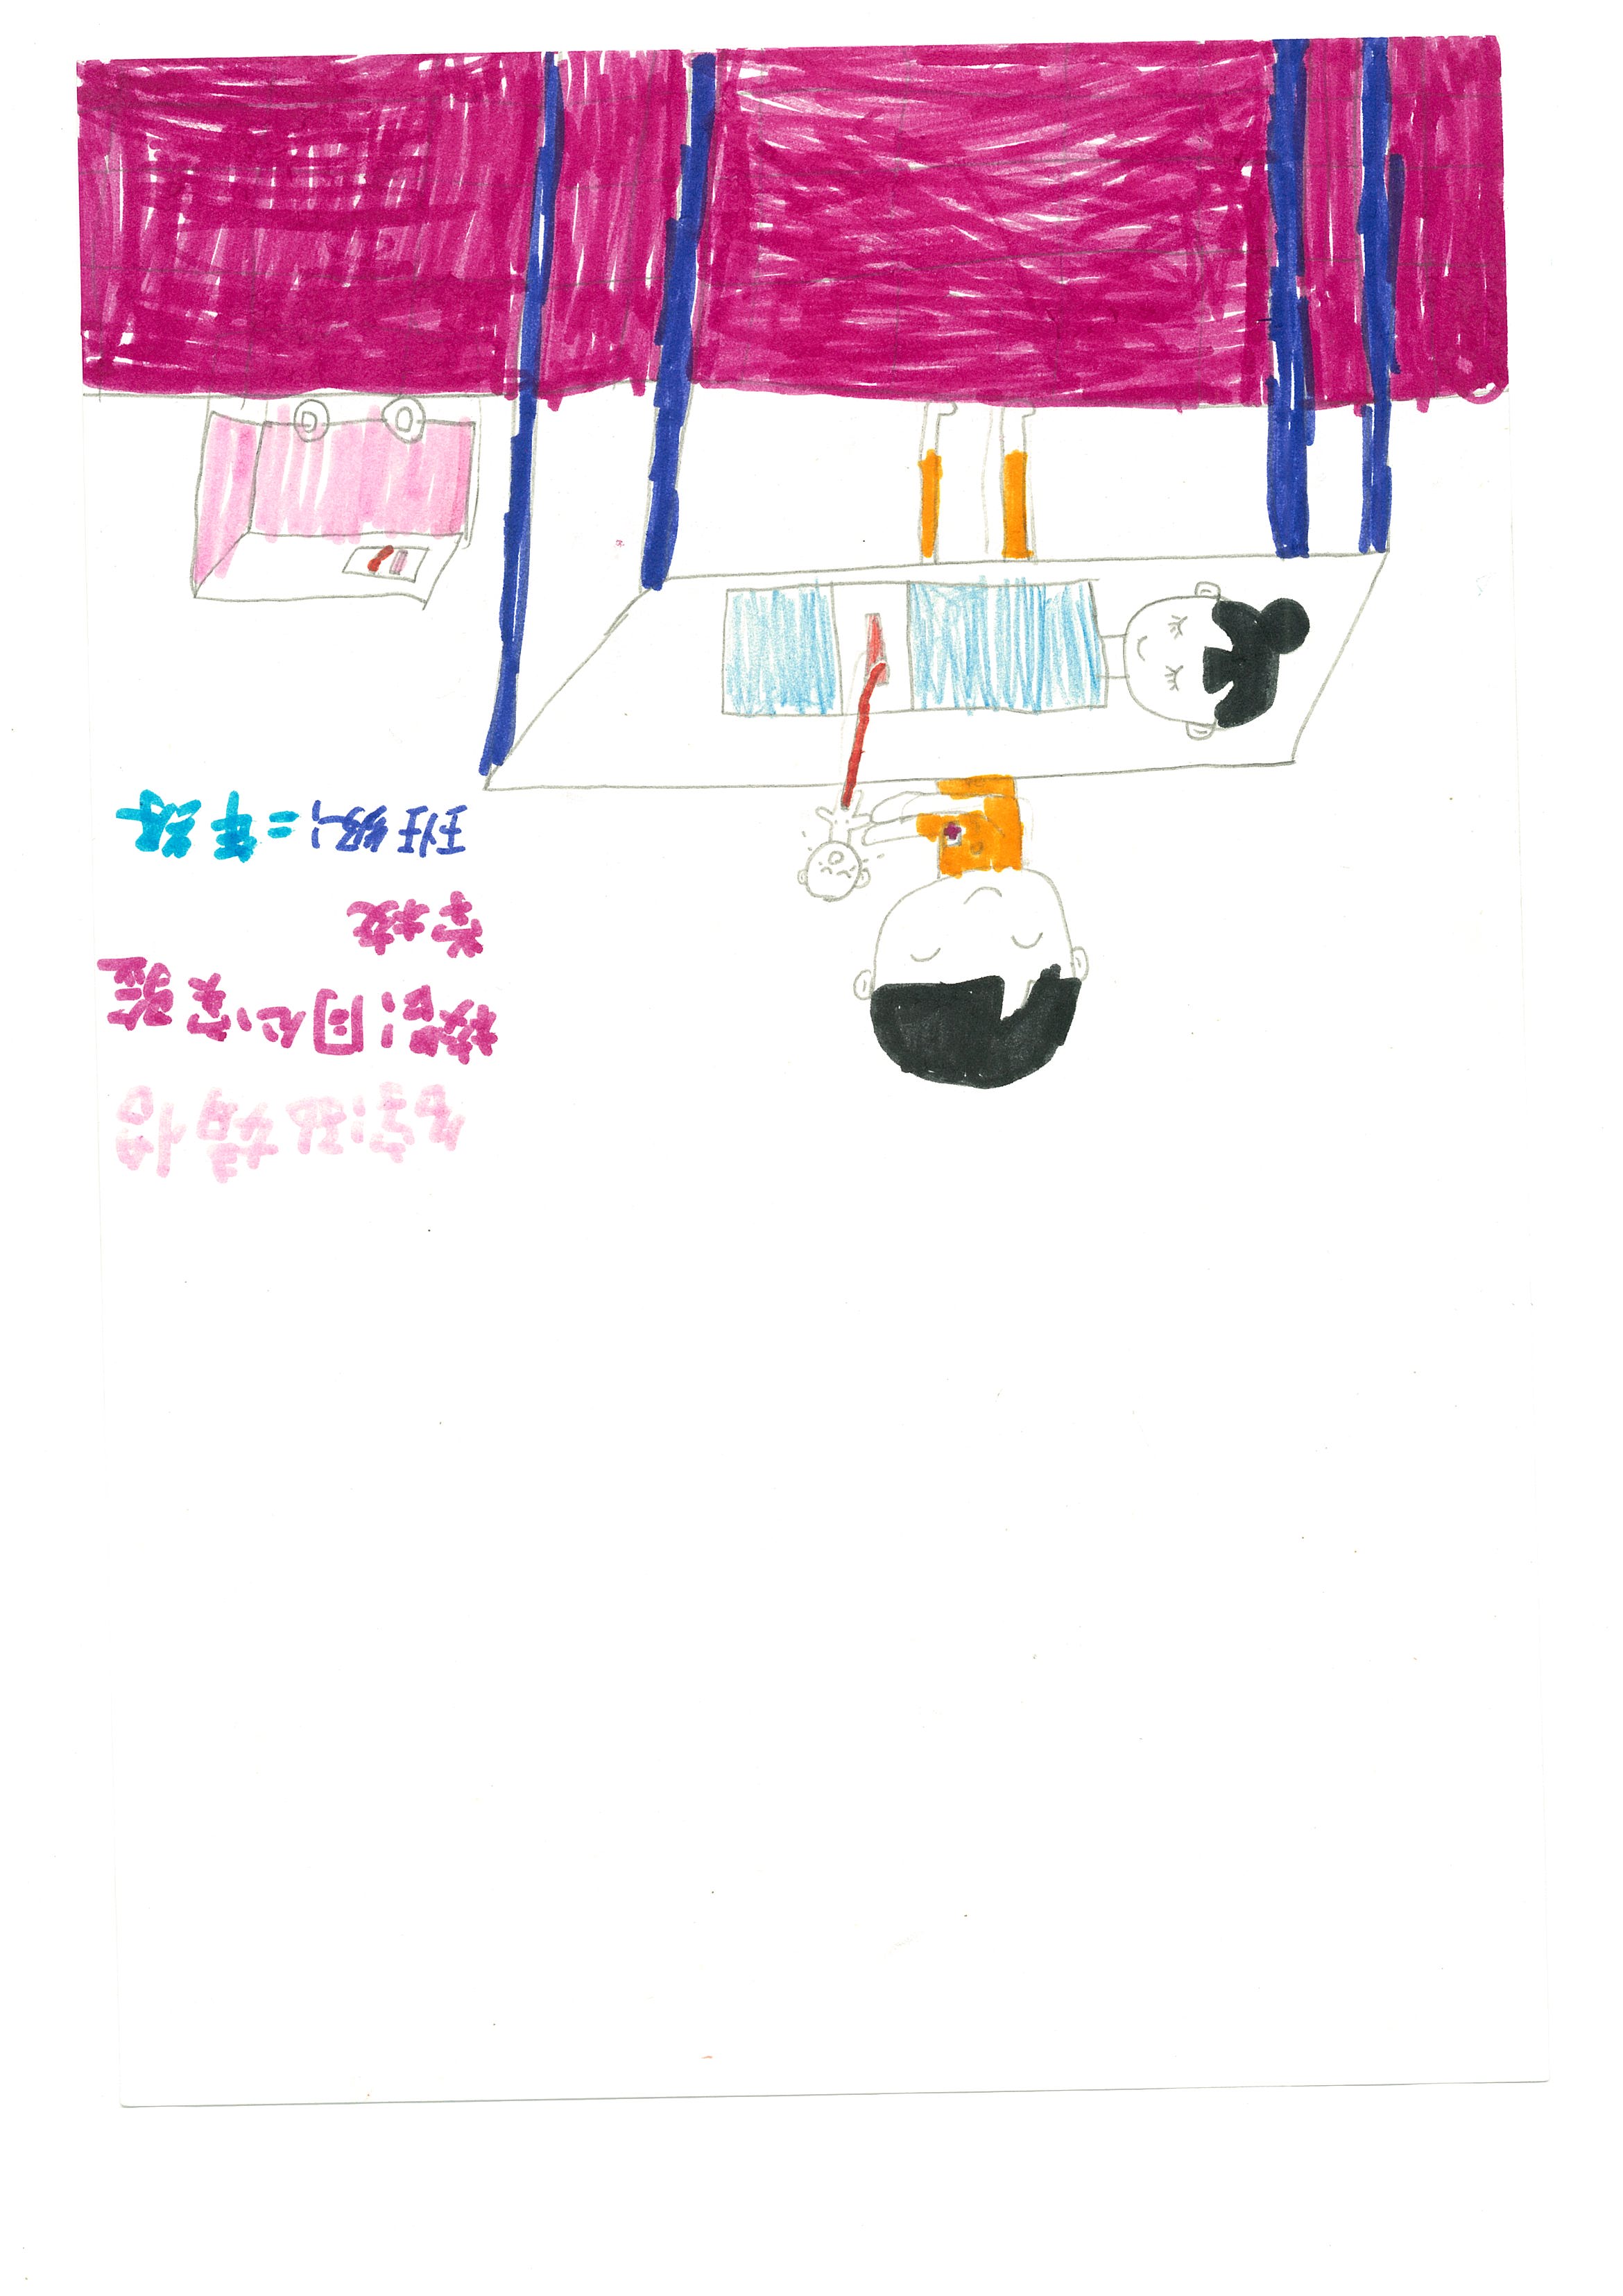 名字:泓婧怡
校名:同心实验
学校
班级:二年级